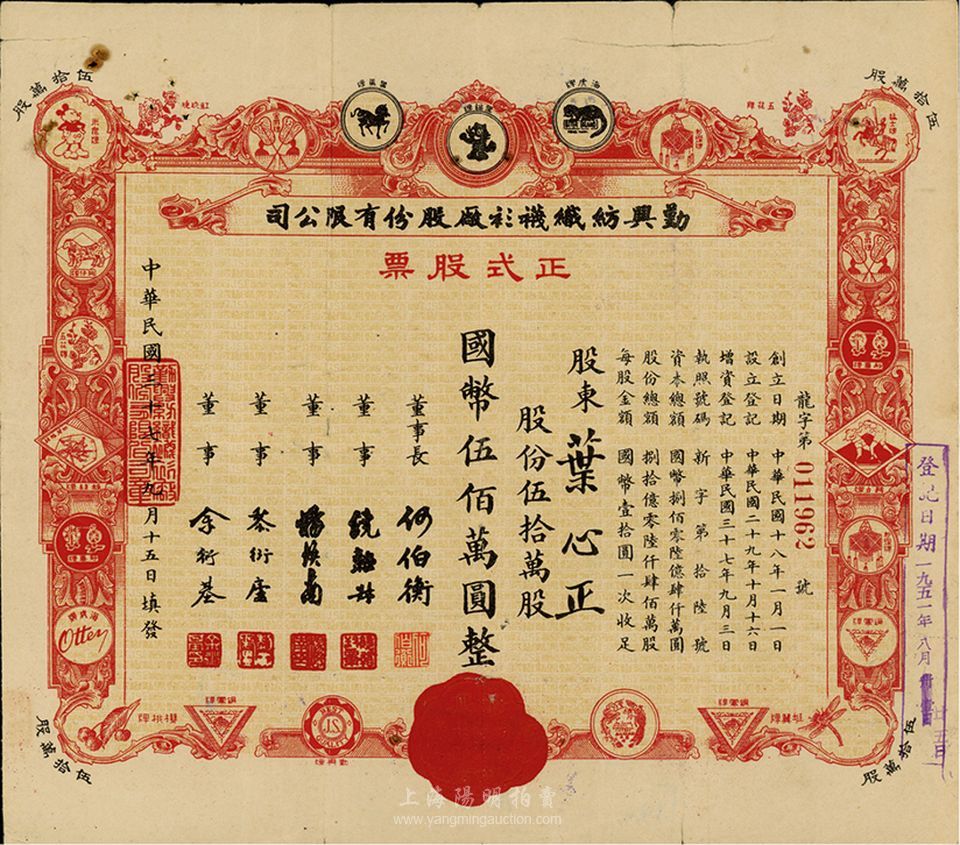 伍拾萬股
伍拾萬股
勤興紡織襪衫廠股份有限公司
正式股票
龍字第 011962 號
創立日期 中華民國十八年一月一日
設立登記 中華民國二十九年十月十六日
增資登記 中華民國三十七年九月三日
執照號碼 新字第拾陸號
資本總額 國幣捌佰零陸億肆仟萬圓
股份總額 捌拾億零陸仟肆佰萬股
每股金額 國幣壹拾圓一次收足
股東 葉心正
股份伍拾萬股
國幣伍佰萬圓整
董事長 何伯衡
董事
董事
董事 黎衍廬
董事 余衍基
中華民國三十七年九月十五日填發
登記日期一九五一年八月
五日
Otter
櫻桃牌
過雲牌
勤興牌
J.S
過雲牌
伍拾萬股
伍拾萬股
上海陽明拍賣
www.yangmingauction.com